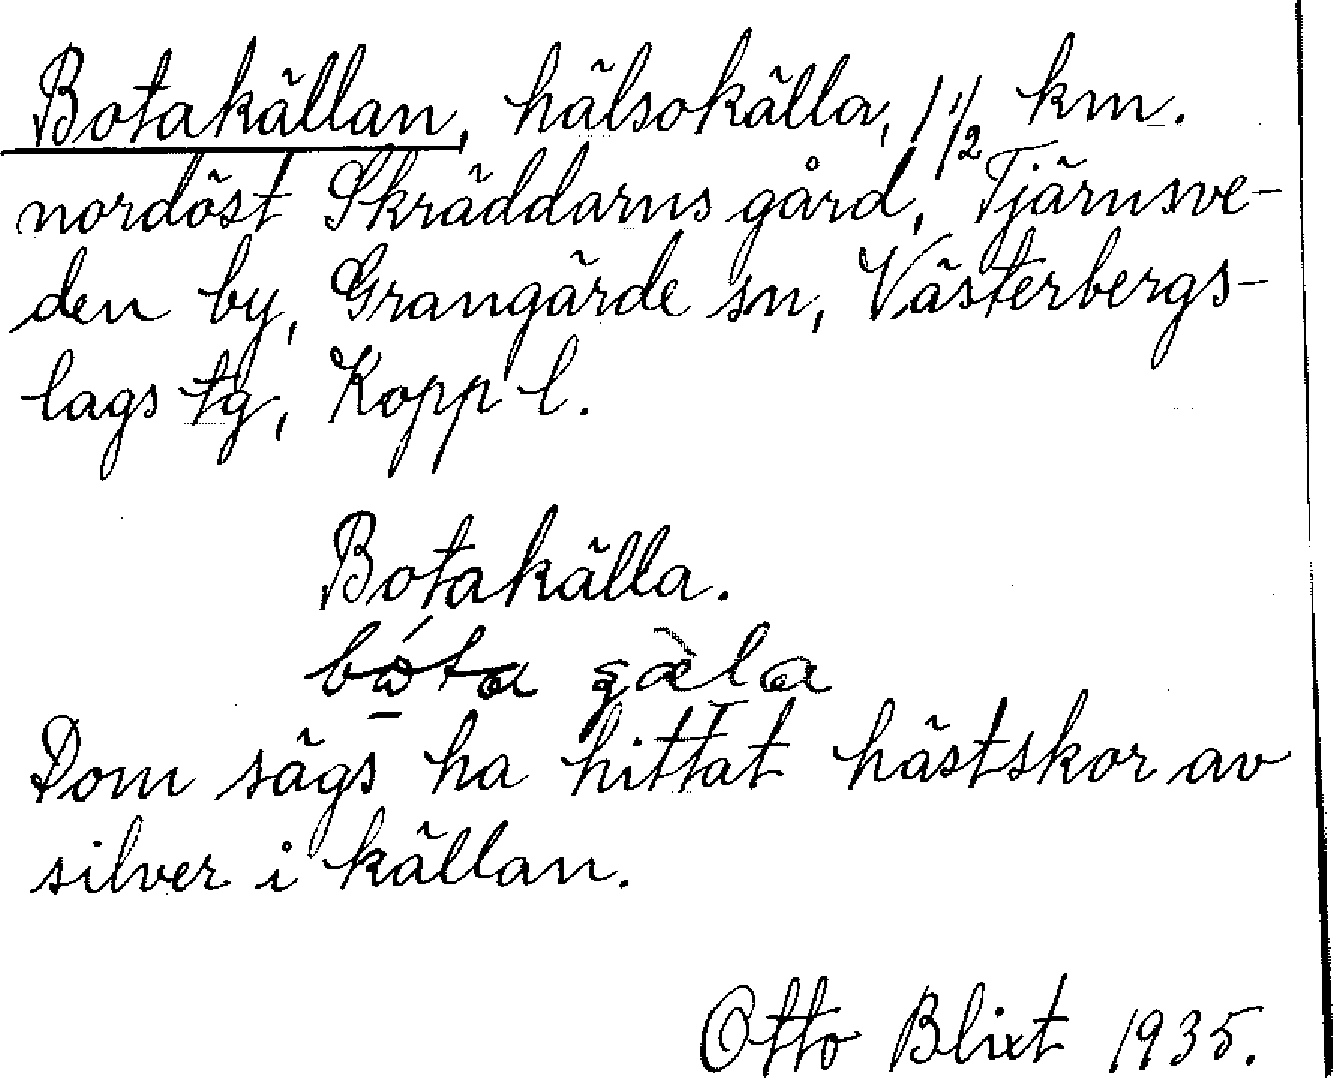 Botakällan, hälsokälla, 1 1/2 km.
nordöst Skräddarns gård, Tjärnsve-
den by, Grangärde sn, Västerbergs-
lags tg, Kopp l.
Botakälla.
Dom sägs ha hittat hästskor av
silver i källan.
Otto Blixt 1935.